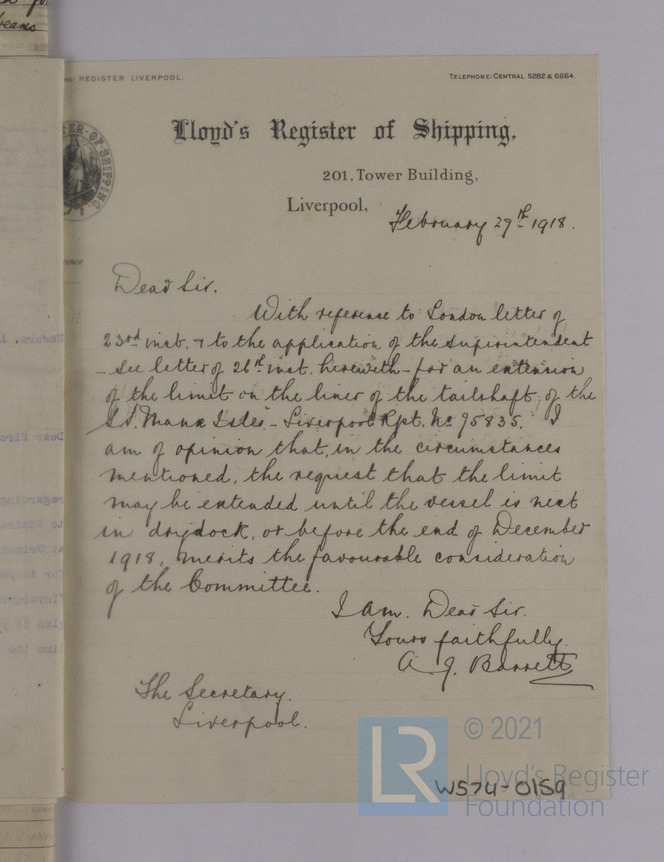 beams
REGISTER LIVERPOOL.
TELEPHONE: CENTRAL 5282 & 6664.
Lloyd's Register of Shipping,
201, Tower Building,
Liverpool, February 27th 1918.
Dear Sir.
With reference to London letter of
23rd inst. & to the application of the Superintendent
- see letter of 26th inst. herewith - for an extension
of the limit on the liner of the tailshaft of the
S.S. "Manx Isles" - Liverpool Rpt. No 95835. I
am of opinion that, in the circumstances
mentioned, the request that the limit
may be extended until the vessel is next
in drydock, or before the end of December
1918, merits the favourable consideration
of the Committee.
I am. Dear Sir.
Yours faithfully.
A. J. Barrett
The Secretary.
Liverpool.
© 2021
LR
Lloyd's Register
Foundation
W574-0159